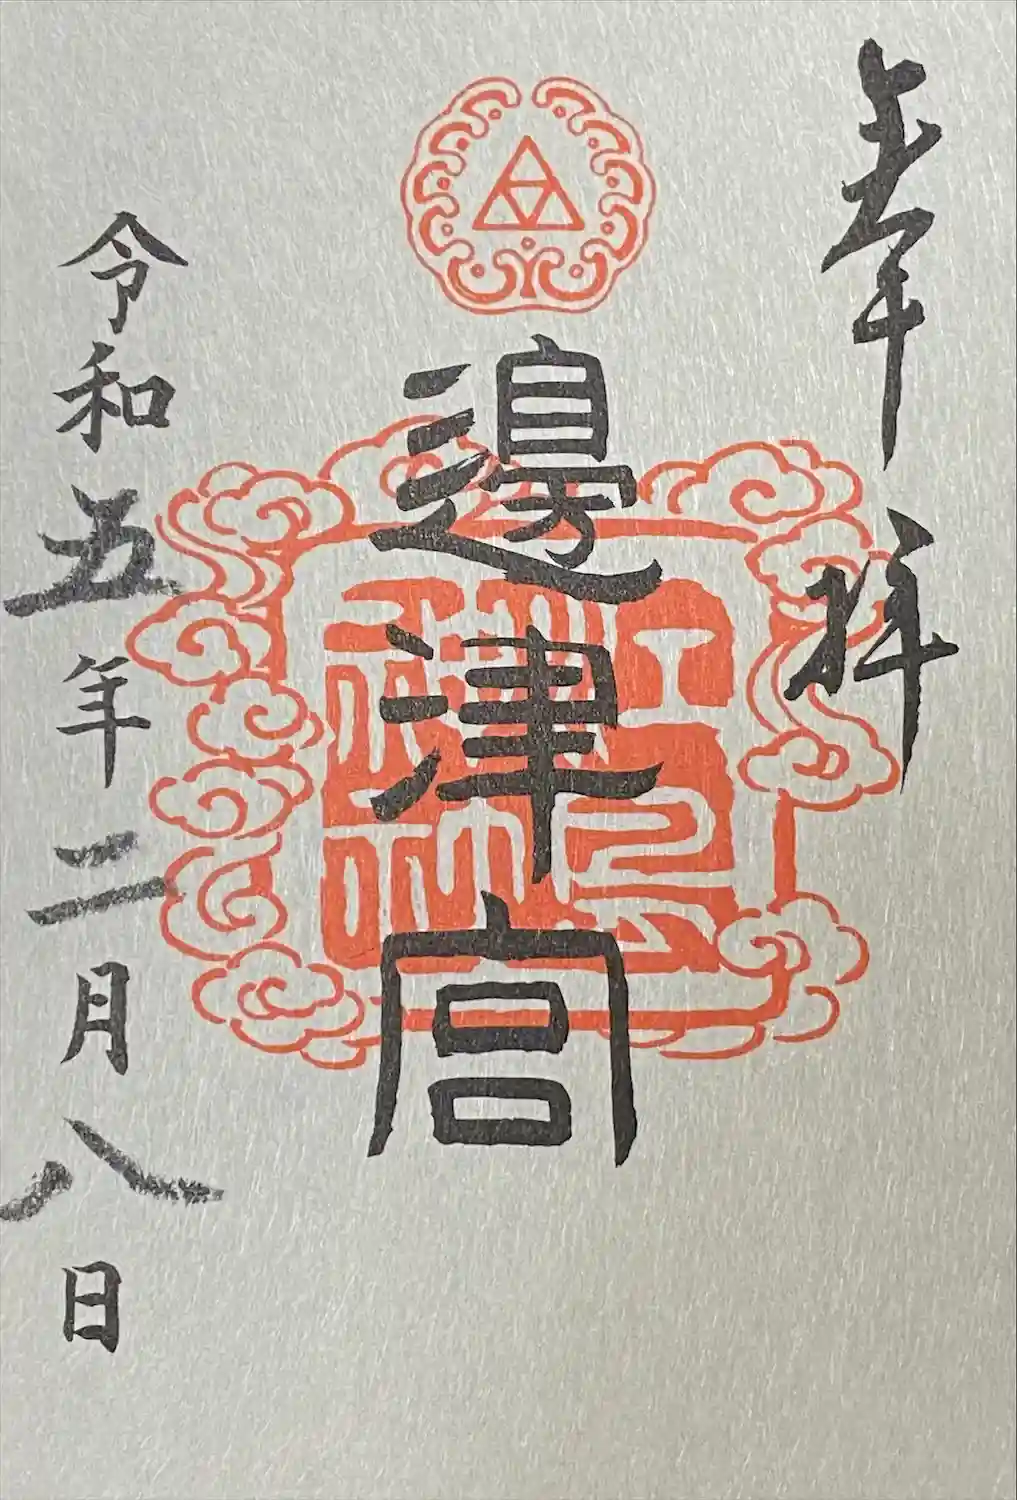 奉拝
邊津宮
令和五年二月八日